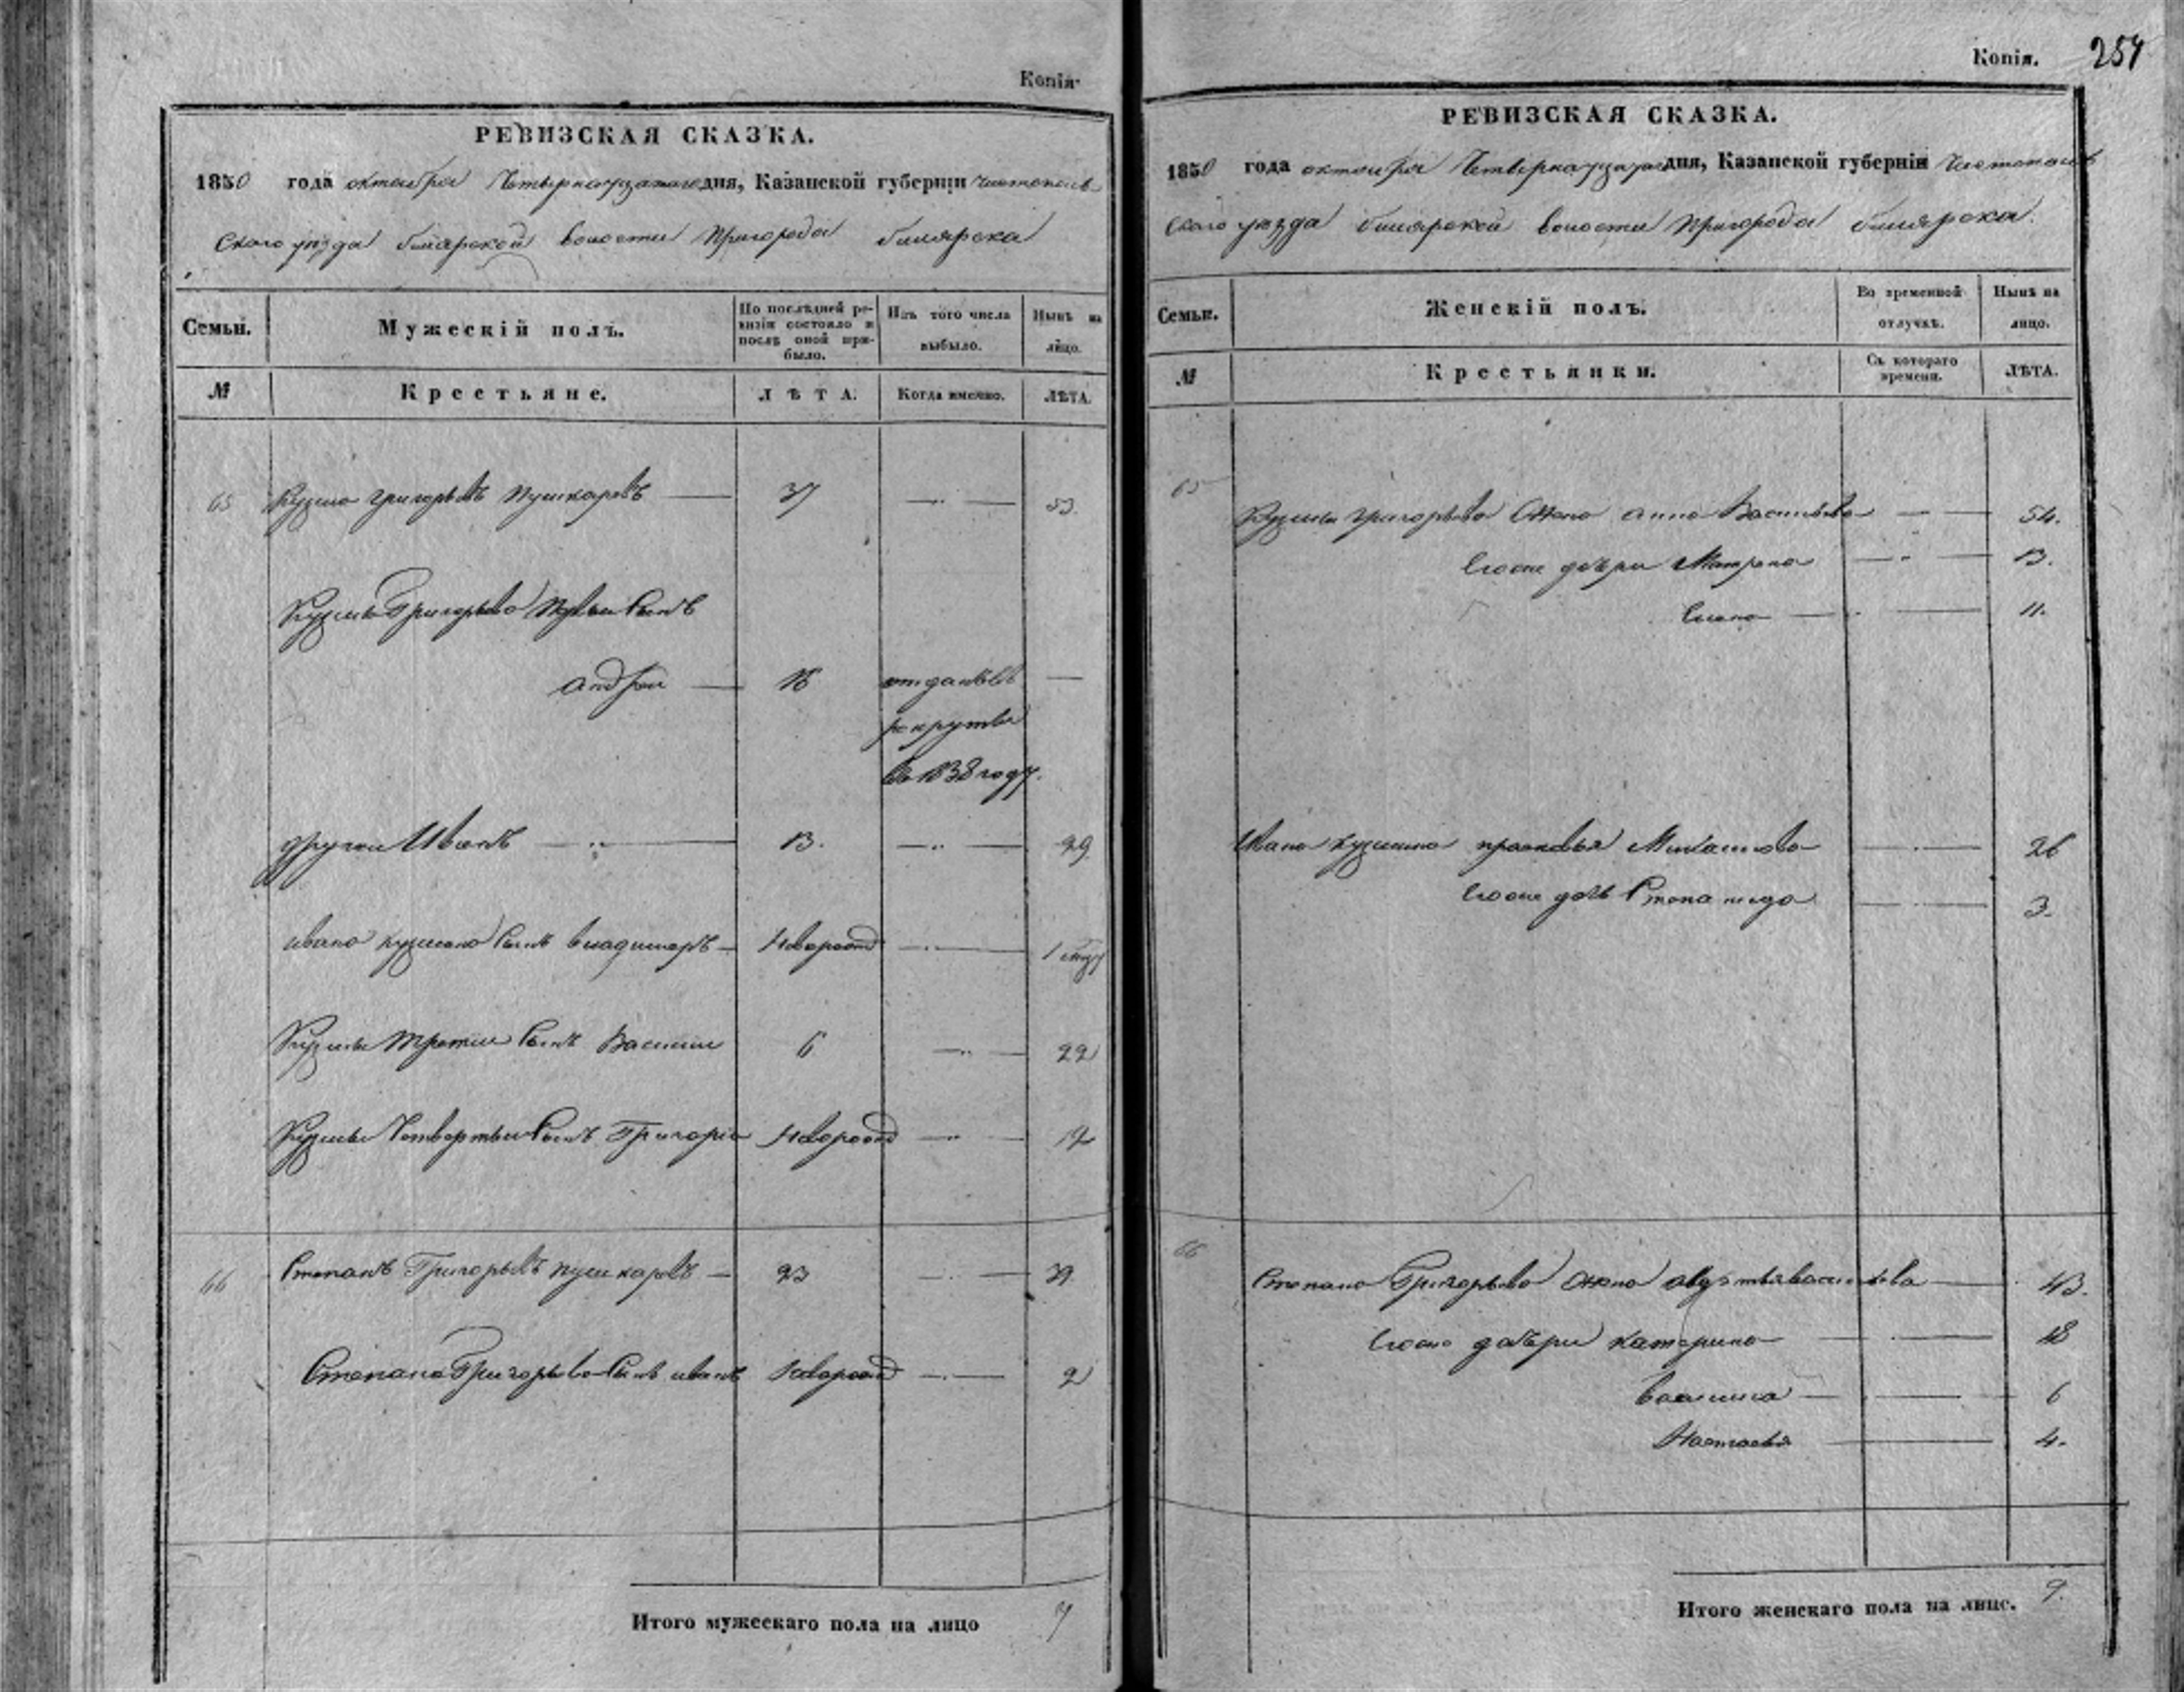 Копія.
РЕВИЗСКАЯ СКАЗКА.
1850 года октября Четырнадцатаго дня, Казанской губерніи Чистополь
скаго уѣзда билярской волости Пригорода билярска
Семьи.
Мужескій полъ.
По послѣдней ре-
визіи состояло и
послѣ оной при-
было.
Изъ того числа
выбыло.
Нынѣ на
лицо.
№
Крестьяне.
ЛѢТА.
Когда именно.
ЛѢТА.
65 Кузма григорьевъ пушкаревъ 37 — 53.
Кузмы Григорьева первый Сынъ
андрей — 16 отданъ въ —
рекруты
въ 1838 году.
другой Иванъ — 13. — 29.
ивана кузмина Сынъ владимиръ — Новорожд — 1
Кузмы третий Сынъ Василий 6 — 22
Кузмы Четвертый Сынъ Григорій Новорожд — 12
66 Степанъ Григорьевъ пушкаревъ — 23 — 39
Степана Григорьева Сынъ иванъ Новорожд — 2
Итого мужескаго пола на лицо 7
Копія. 254
РЕВИЗСКАЯ СКАЗКА.
1850 года октября Четырнадцатаго дня, Казанской губерніи Чистополь
скаго уѣзда билярской волости Пригорода билярска.
Семьи.
Женскій полъ.
Во временной
отлучкѣ.
Нынѣ на
лицо.
№
Крестьянки.
Съ котораго
времени.
ЛѢТА.
65 Кузмы григорьева Жена анна Васильева — 54.
Егоже дочери Матрена — 13.
Елена — 11.
Ивана кузмина прасковья — 26
Егоже дочь Степанида — 3.
66 Степана Григорьева жена авдотья васильева — 43.
Егоже дочери катерина — 18
василиса — 6
Настасья — 4.
Итого женскаго пола на лицо. 9.